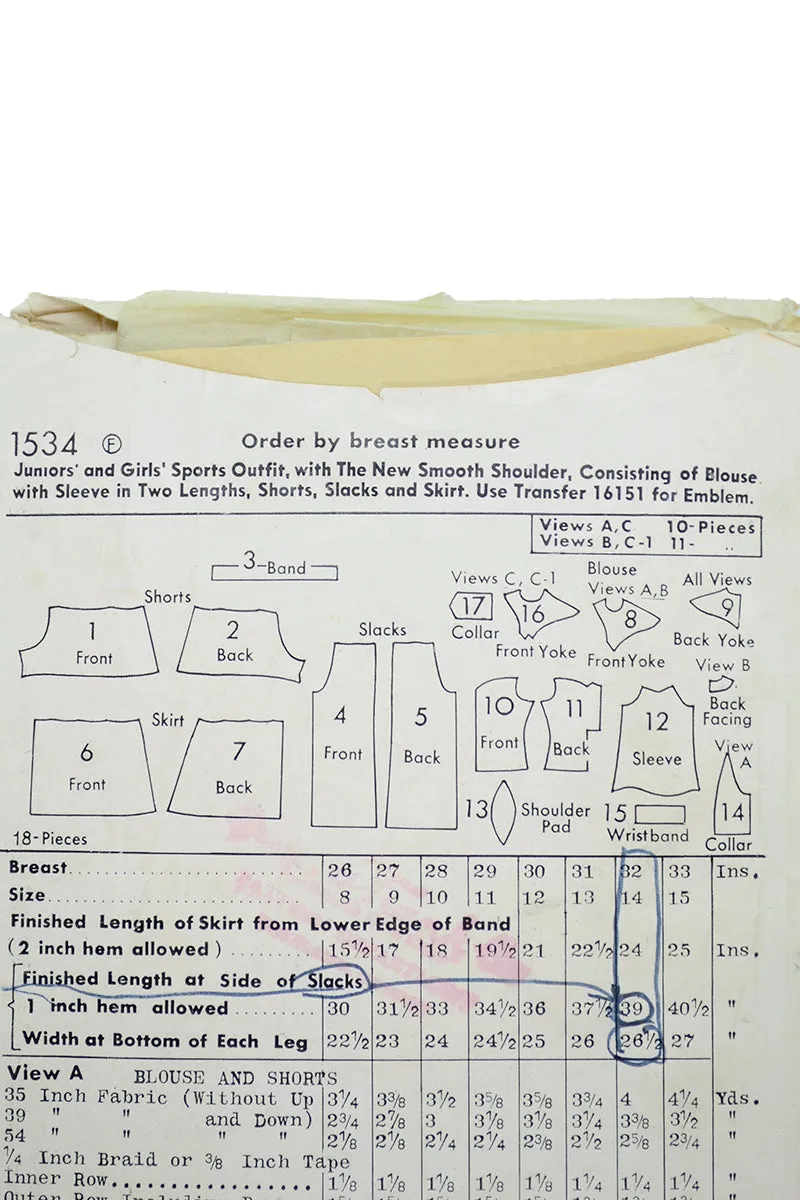 1534 Ⓕ Order by breast measure
Juniors' and Girls' Sports Outfit, with The New Smooth Shoulder, Consisting of Blouse
with Sleeve in Two Lengths, Shorts, Slacks and Skirt. Use Transfer 16151 for Emblem.
Views A,C 10-Pieces
Views B,C-1 11- "
3-Band
Shorts
1 Front
2 Back
Slacks
4 Front
5 Back
Skirt
6 Front
7 Back
Views C, C-1
17 Collar
16 Front Yoke
Blouse
Views A,B
8 Front Yoke
All Views
9 Back Yoke
10 Front
11 Back
12 Sleeve
View B
Back
Facing
View A
14 Collar
13 Shoulder Pad
15 Wristband
18-Pieces
Breast 26 27 28 29 30 31 32 33 Ins.
Size 8 9 10 11 12 13 14 15
Finished Length of Skirt from Lower Edge of Band
(2 inch hem allowed) 15½ 17 18 19½ 21 22½ 24 25 Ins.
Finished Length at Side of Slacks
1 inch hem allowed 30 31½ 33 34½ 36 37½ 39 40½ "
Width at Bottom of Each Leg 22½ 23 24 24½ 25 26 26½ 27 "
View A BLOUSE AND SHORTS
35 Inch Fabric (Without Up 3¼ 3⅜ 3½ 3⅝ 3⅝ 3¾ 4 4¼ Yds.
39 " " and Down) 2¾ 2⅞ 3 3⅛ 3⅛ 3¼ 3⅜ 3½ "
54 " " " " 2⅛ 2⅛ 2¼ 2¼ 2⅜ 2½ 2⅝ 2¾ "
¼ Inch Braid or ⅜ Inch Tape
Inner Row 1⅛ 1⅛ 1⅛ 1⅛ 1⅛ 1¼ 1¼ 1¼ "